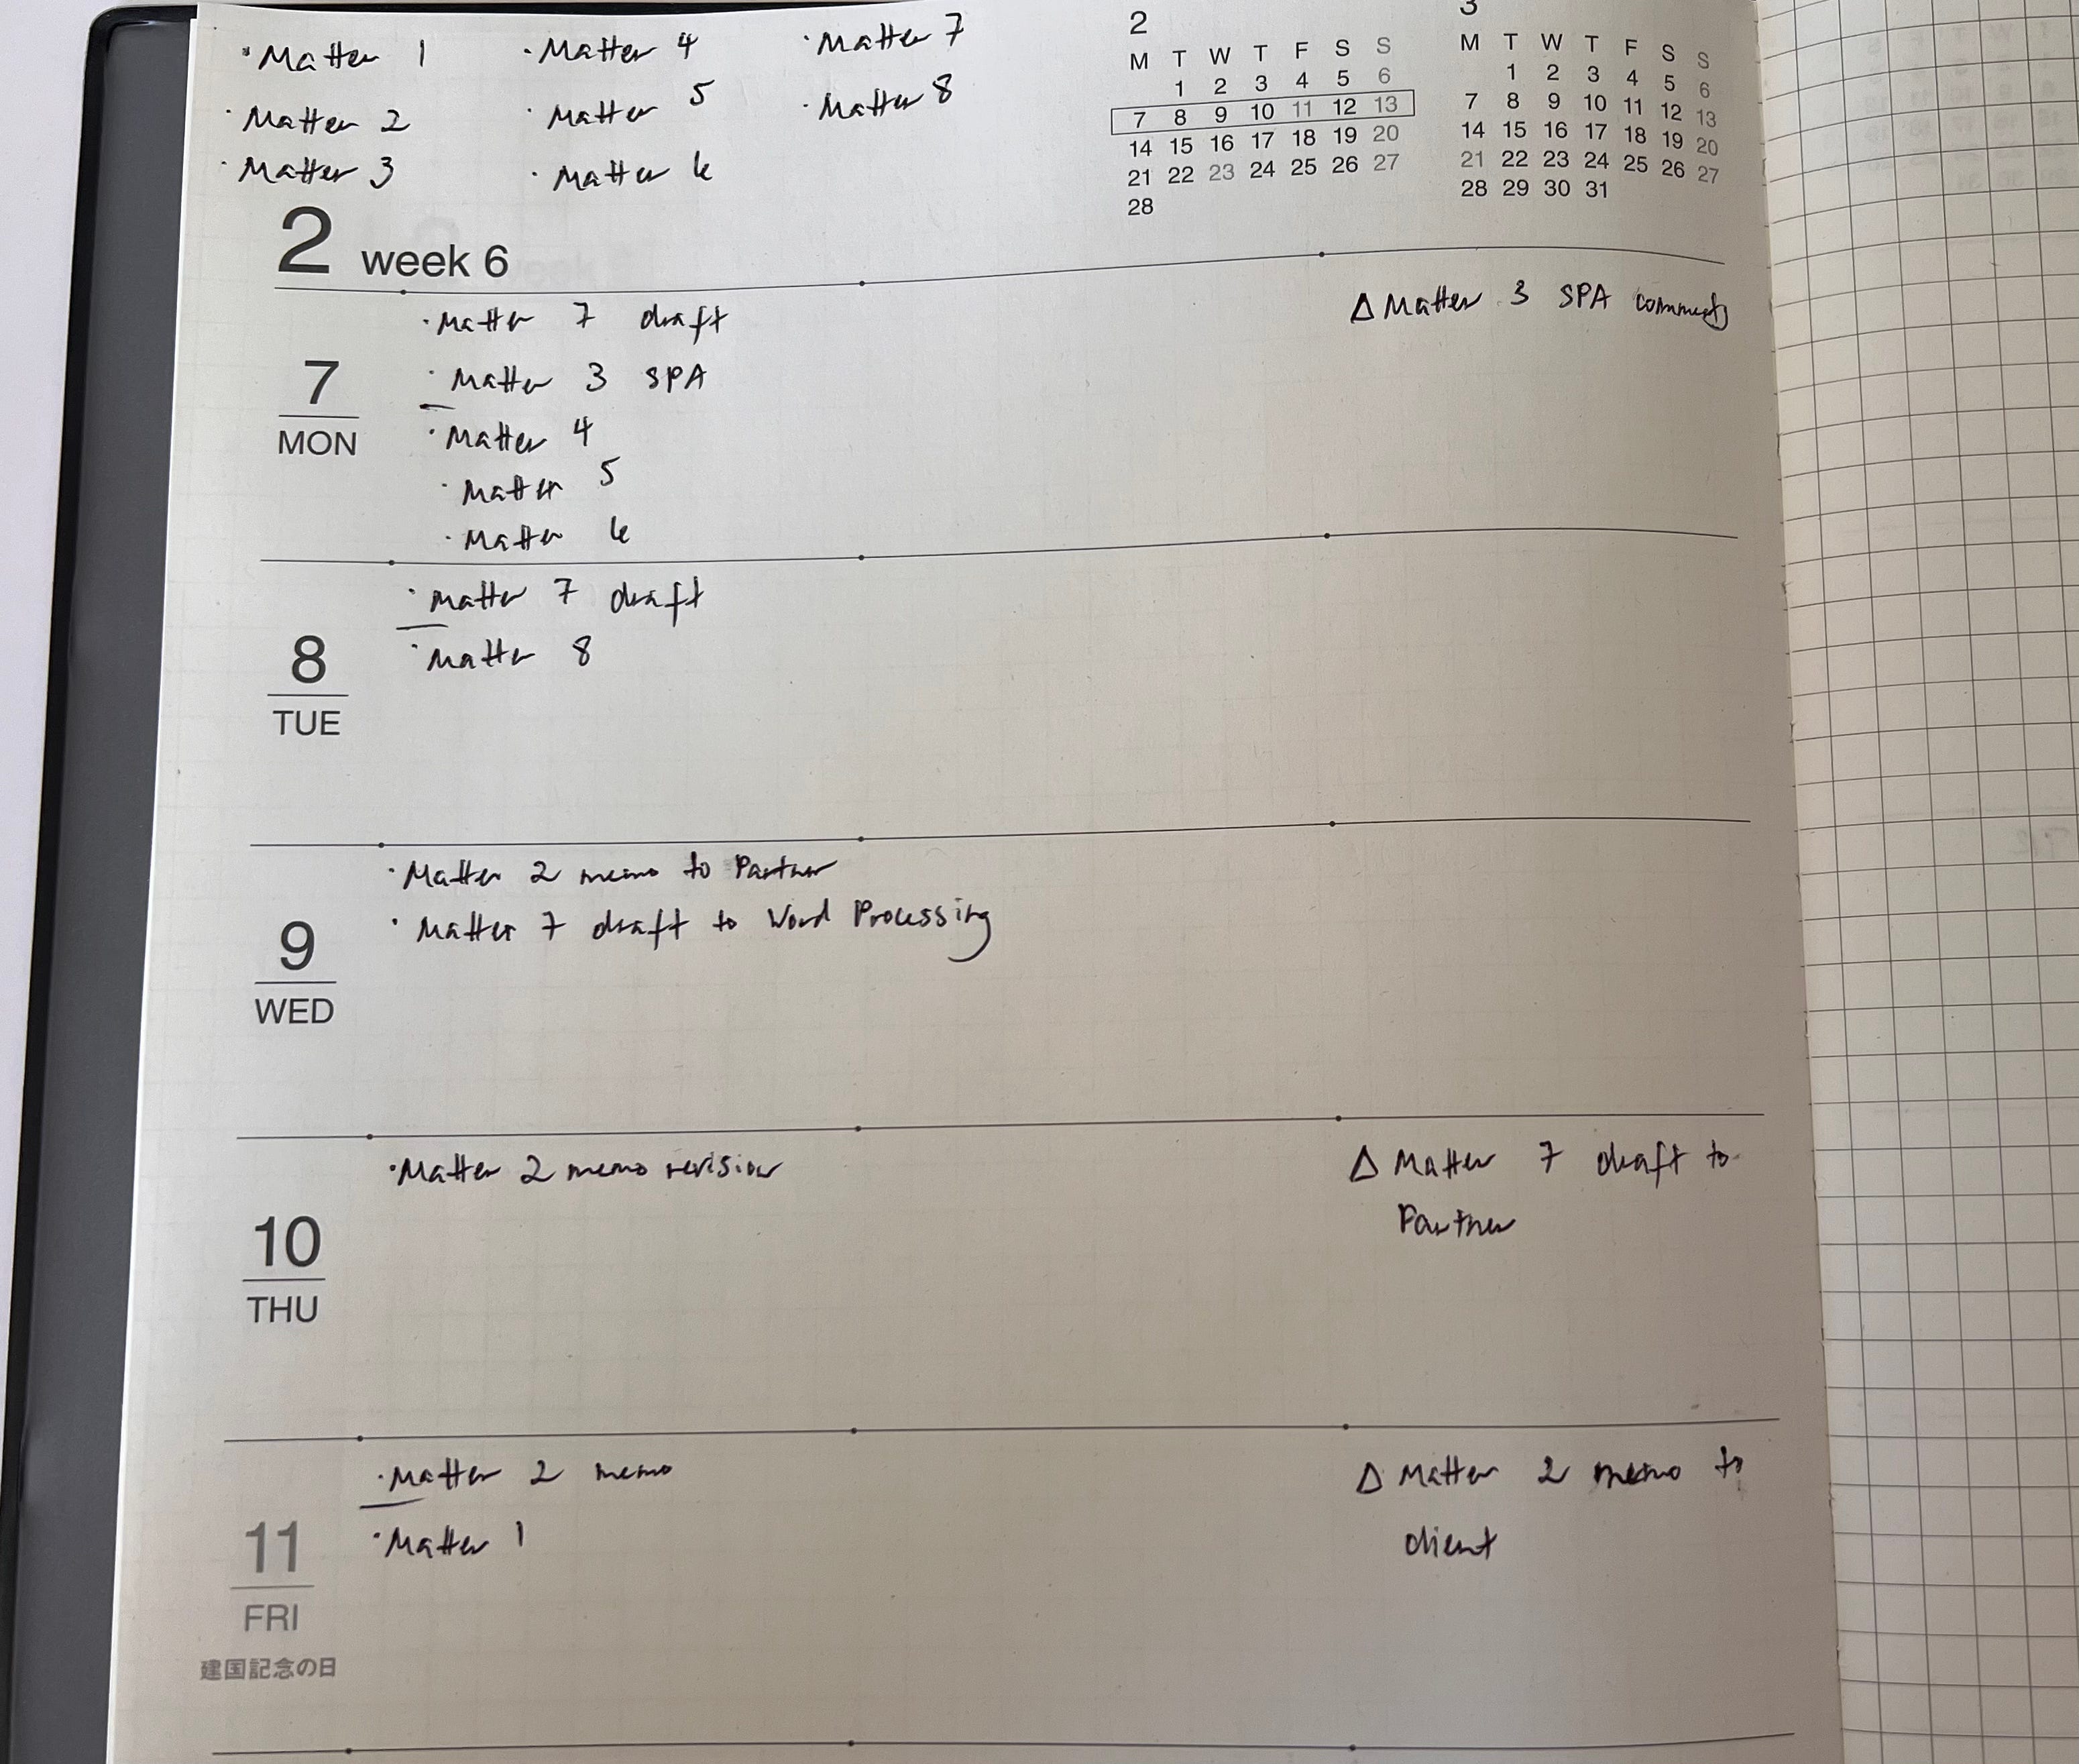 · Matter 1
· Matter 2
· Matter 3
· Matter 4
· Matter 5
· Matter 6
· Matter 7
· Matter 8
2
M T W T F S S
1 2 3 4 5 6
7 8 9 10 11 12 13
14 15 16 17 18 19 20
21 22 23 24 25 26 27
28
3
M T W T F S S
1 2 3 4 5 6
7 8 9 10 11 12 13
14 15 16 17 18 19 20
21 22 23 24 25 26 27
28 29 30 31
2 week 6
7
MON
· Matter 7 draft
· Matter 3 SPA
· Matter 4
· Matter 5
· Matter 6
Δ Matter 3 SPA comments
8
TUE
· Matter 7 draft
· Matter 8
9
WED
· Matter 2 memo to Partner
· Matter 7 draft to Word Processing
10
THU
· Matter 2 memo revision
Δ Matter 7 draft to
Partner
11
FRI
建国記念の日
· Matter 2 memo
· Matter 1
Δ Matter 2 memo to
client